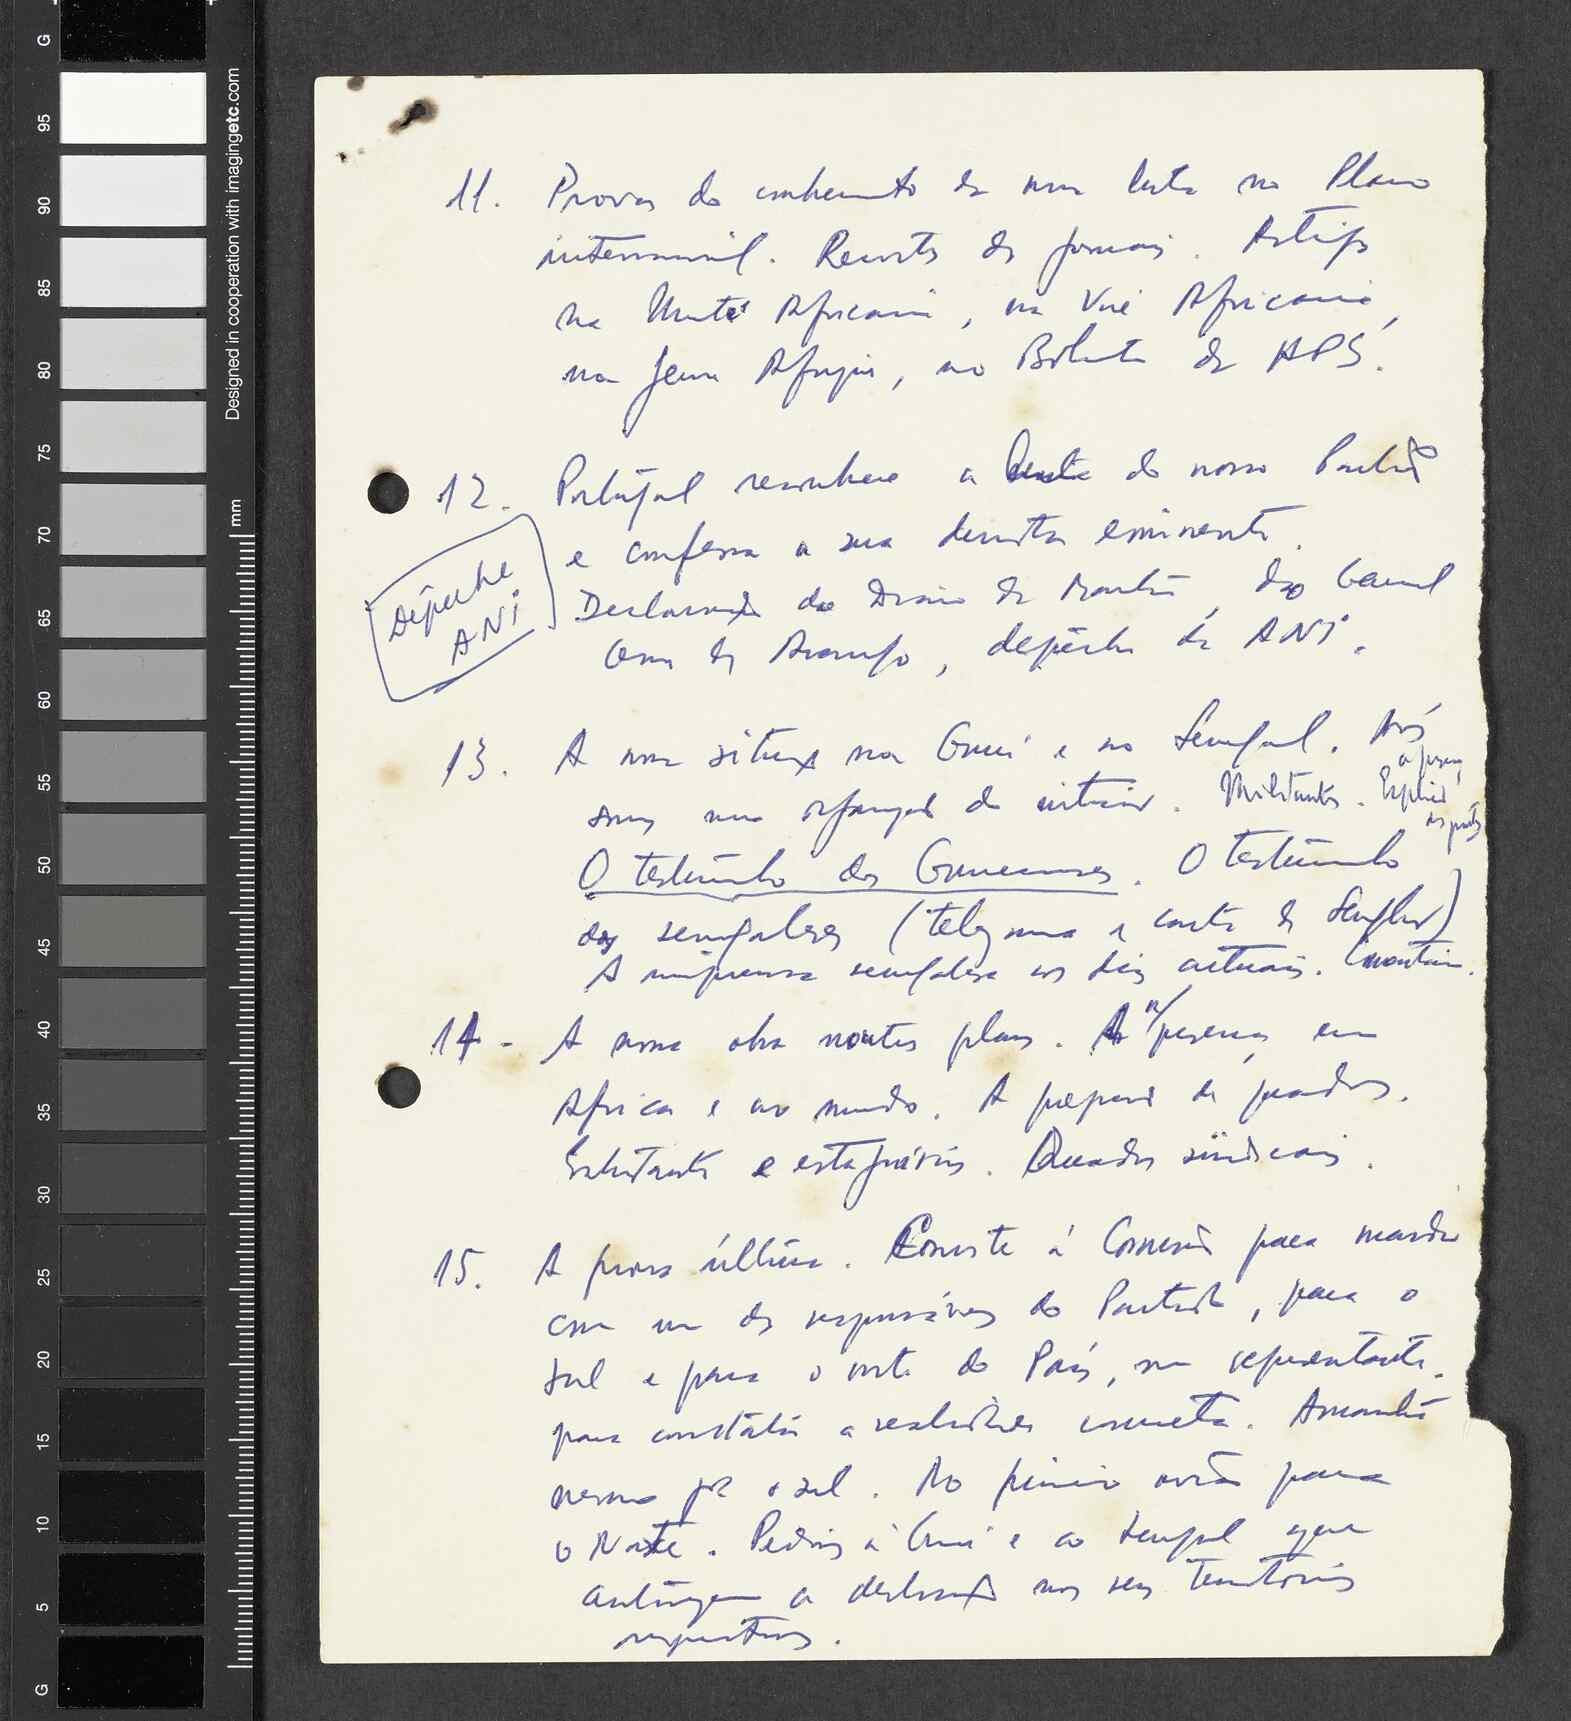 G
95
90
85
80
75
70
65
60
55
50
45
40
35
30
25
20
15
10
5
G
Designed in cooperation with imagingetc.com
mm
11. Provas do conhecimento da nossa luta no Plano
internacional. Recortes de jornais. Artigos
na Unité Africaine, na Voie Africaine,
na Jeune Afrique, no Boletim da APS.
12. Portugal reconhece a luta do nosso Partido
e confessa a sua derrota eminente.
Declaração do Diário da Manhã, do
de Araujo, depêche da ANI.
Dépêche
ANI
13. A nossa situação na Guiné e no Senegal. Nós
somos uma organização do interior. Militantes.
O testemunho dos Guineenses. O testemunho
dos senegaleses (telegrama e carta de Senghor)
A imprensa senegalesa os dias actuais.
14 - A nossa obra noutros planos. A n/ presença em
Africa e no mundo. A preparação de quadros.
Estudantes e estagiários. Quadros sindicais.
15. A prova última. Convite à Comissão para mandar
com um dos responsáveis do Partido, para o
sul e para o norte do País, um representante
para constatar a realidade concreta. Amanhã
mesmo para o sul. No primeiro avião para
o Norte. Pedimos à Guiné e ao Senegal que
autorizem a deslocação nos seus territórios
respectivos.